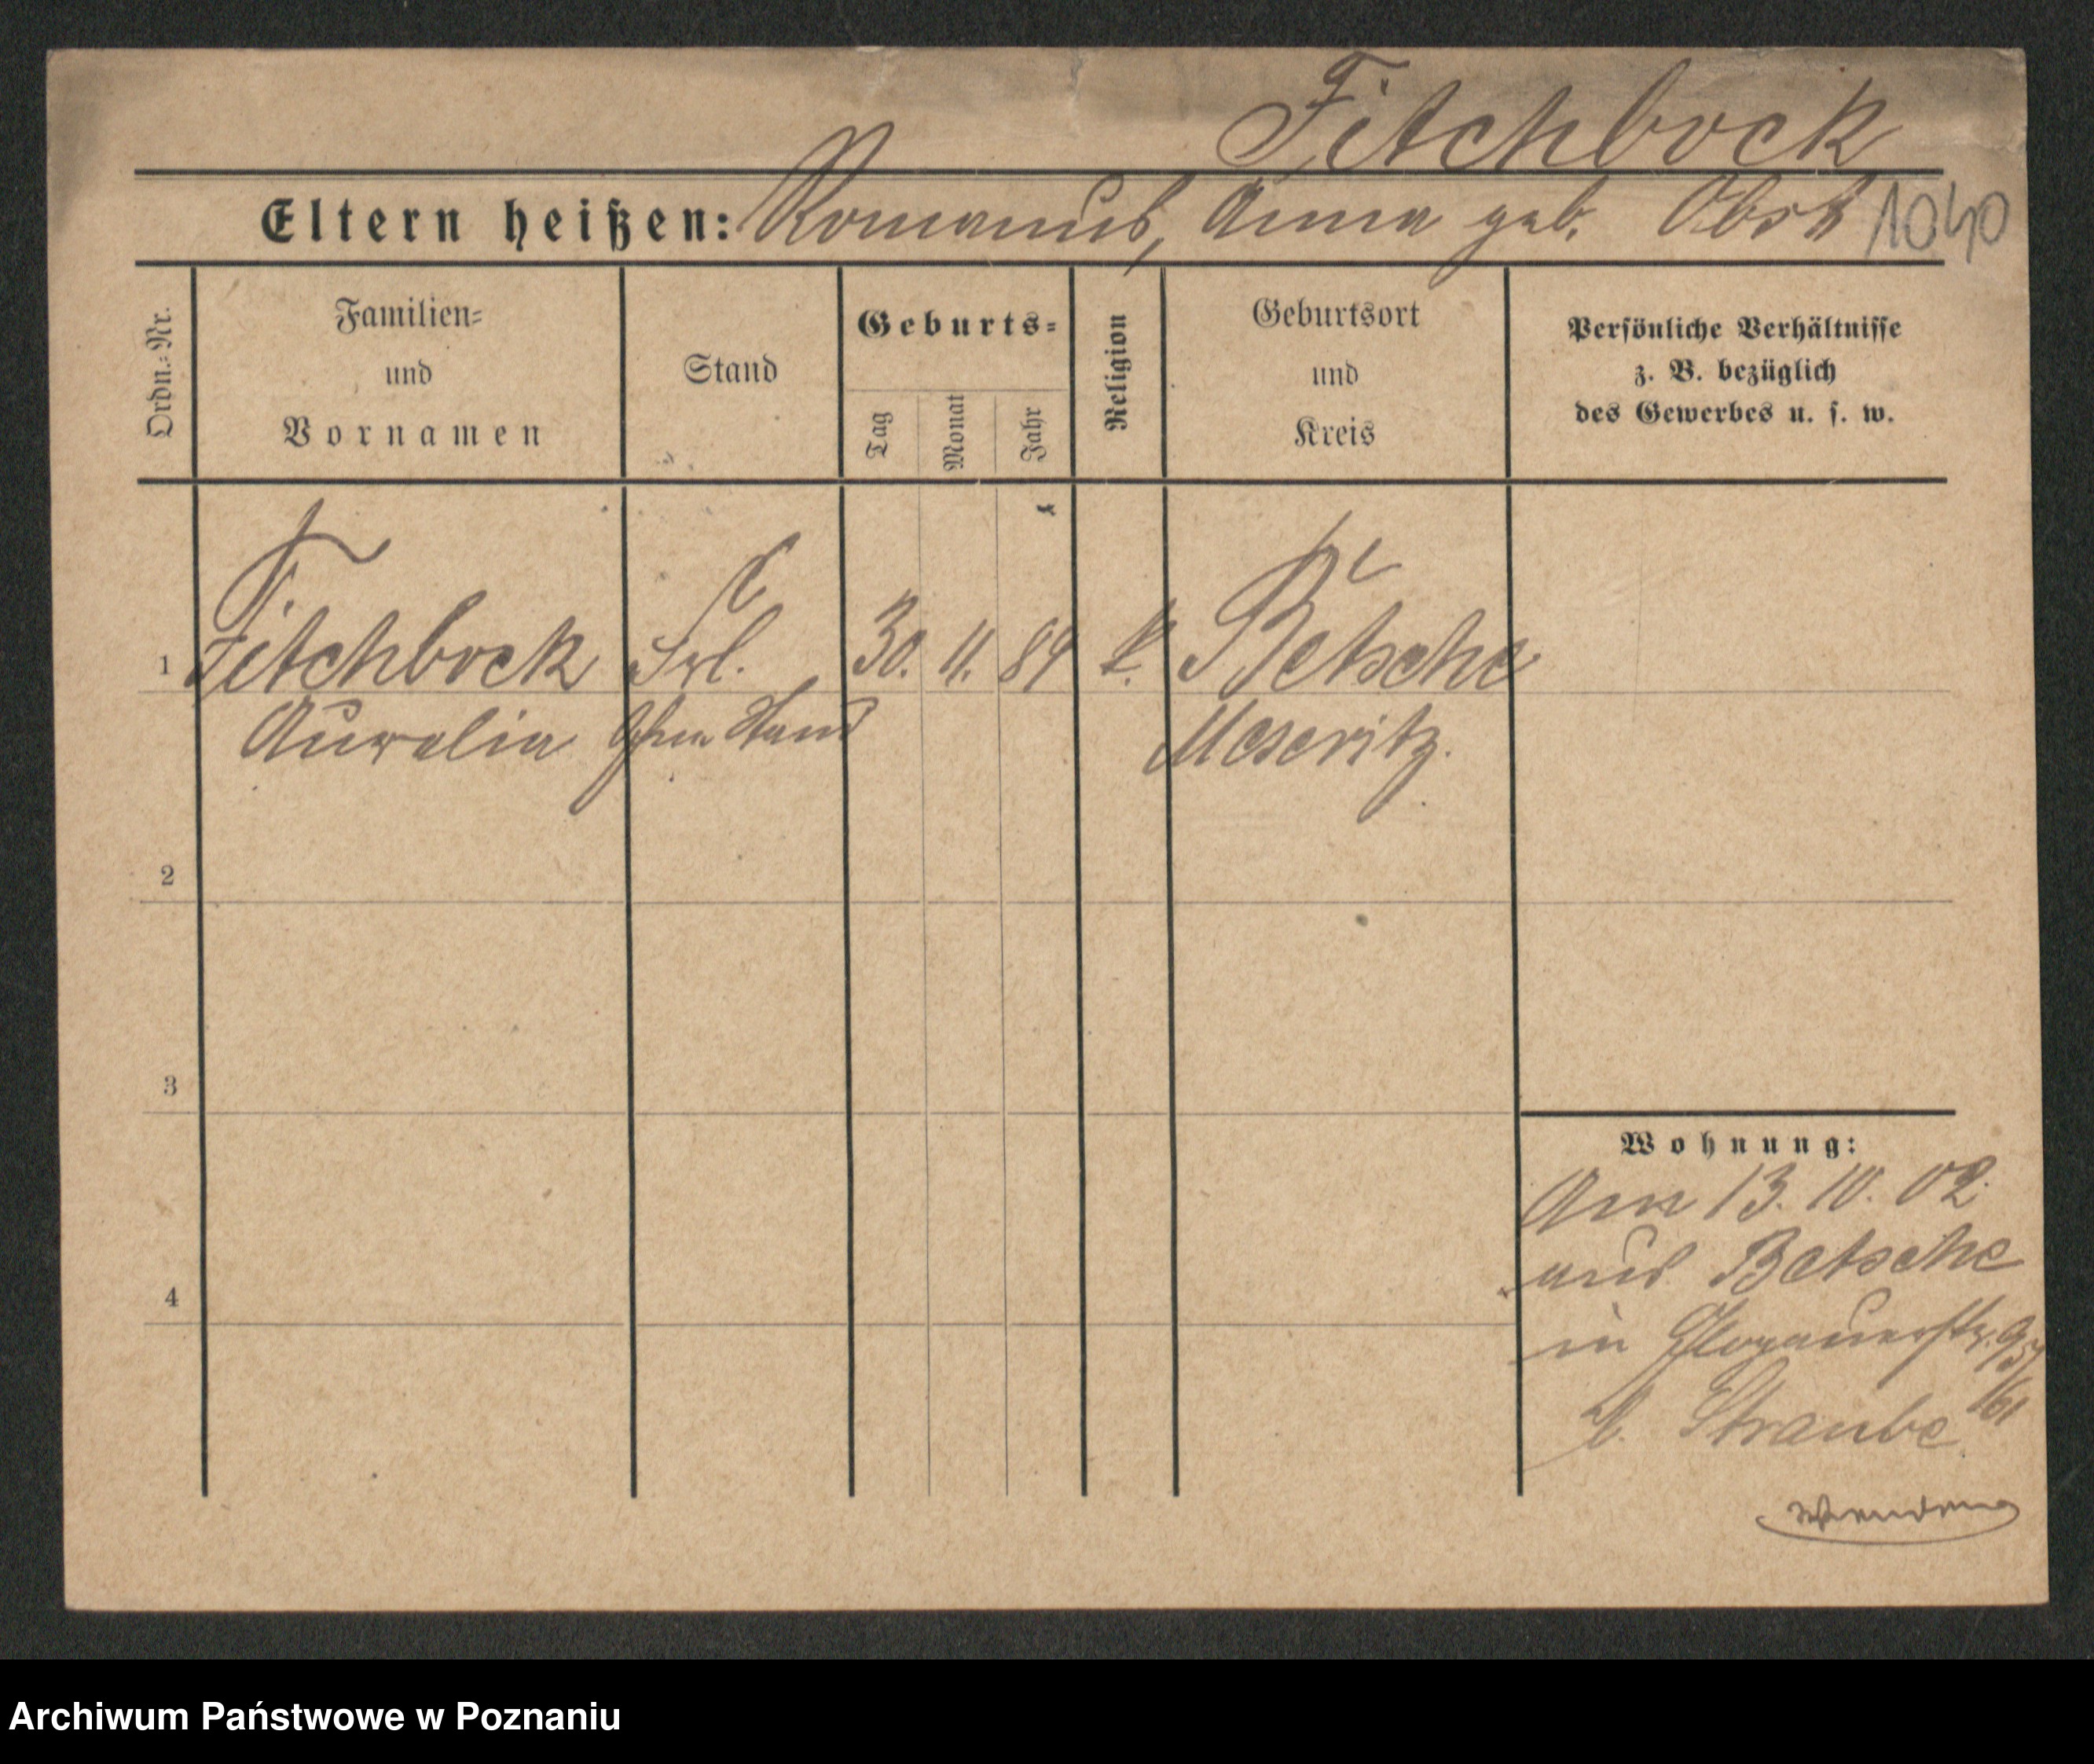 Fitchbock
Eltern heißen: Romanus, Anna geb. Obst 1040
Ordn.-Nr.
Familien-
und
Vornamen
Stand
Geburts-
Tag
Monat
Jahr
Religion
Geburtsort
und
Kreis
Persönliche Verhältnisse
z. B. bezüglich
des Gewerbes u. s. w.
1 Fitchbock Frl. 30. 11. 84 k. Betsche
Aurelia Ohne Stand Meseritz.
2
3
4
Wohnung:
Am 13. 10. 02.
aus Betsche
in Glogauerstr. 95/
b. Straube
Archiwum Państwowe w Poznaniu